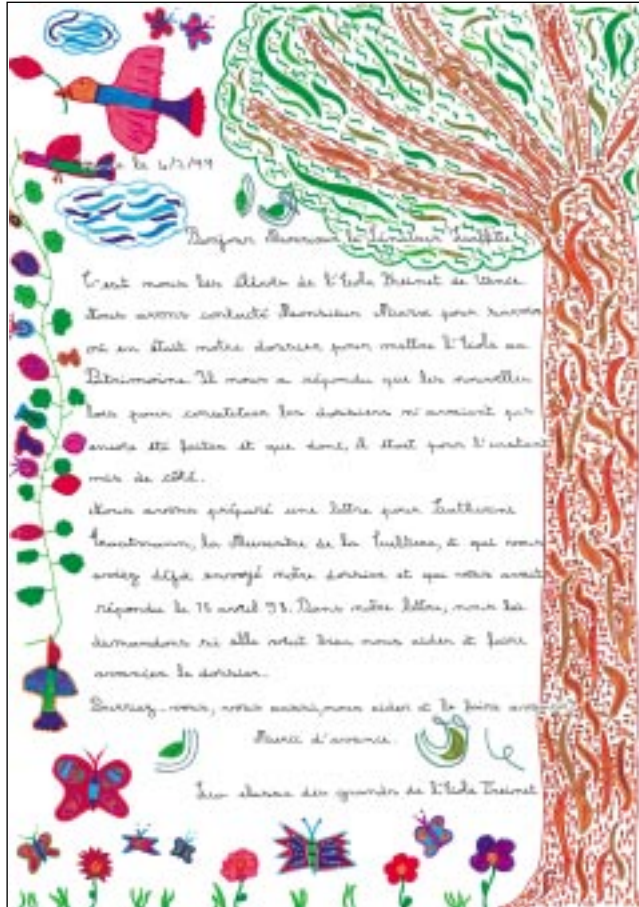 le 4/2/99
Bonjour Monsieur le Sénateur
C'est nous les élèves de l'École Freinet de Vence.
Nous avons contacté Monsieur pour savoir
où en était notre dossier pour mettre l'École au
Patrimoine. Il nous a répondu que les nouvelles
lois pour constituer les dossiers n'avaient pas
encore été faites et que donc, il était pour l'instant
mis de côté.
Nous avons préparé une lettre pour Catherine
Trautmann, la Ministre de la Culture, à qui vous
aviez déjà envoyé notre dossier et qui vous avait
répondu le 15 avril 98. Dans notre lettre, nous lui
demandons si elle veut bien nous aider et faire
avancer le dossier.
Pourriez-vous, vous aussi, nous aider et le faire
Merci d'avance.
Les classe des grands de l'École Freinet